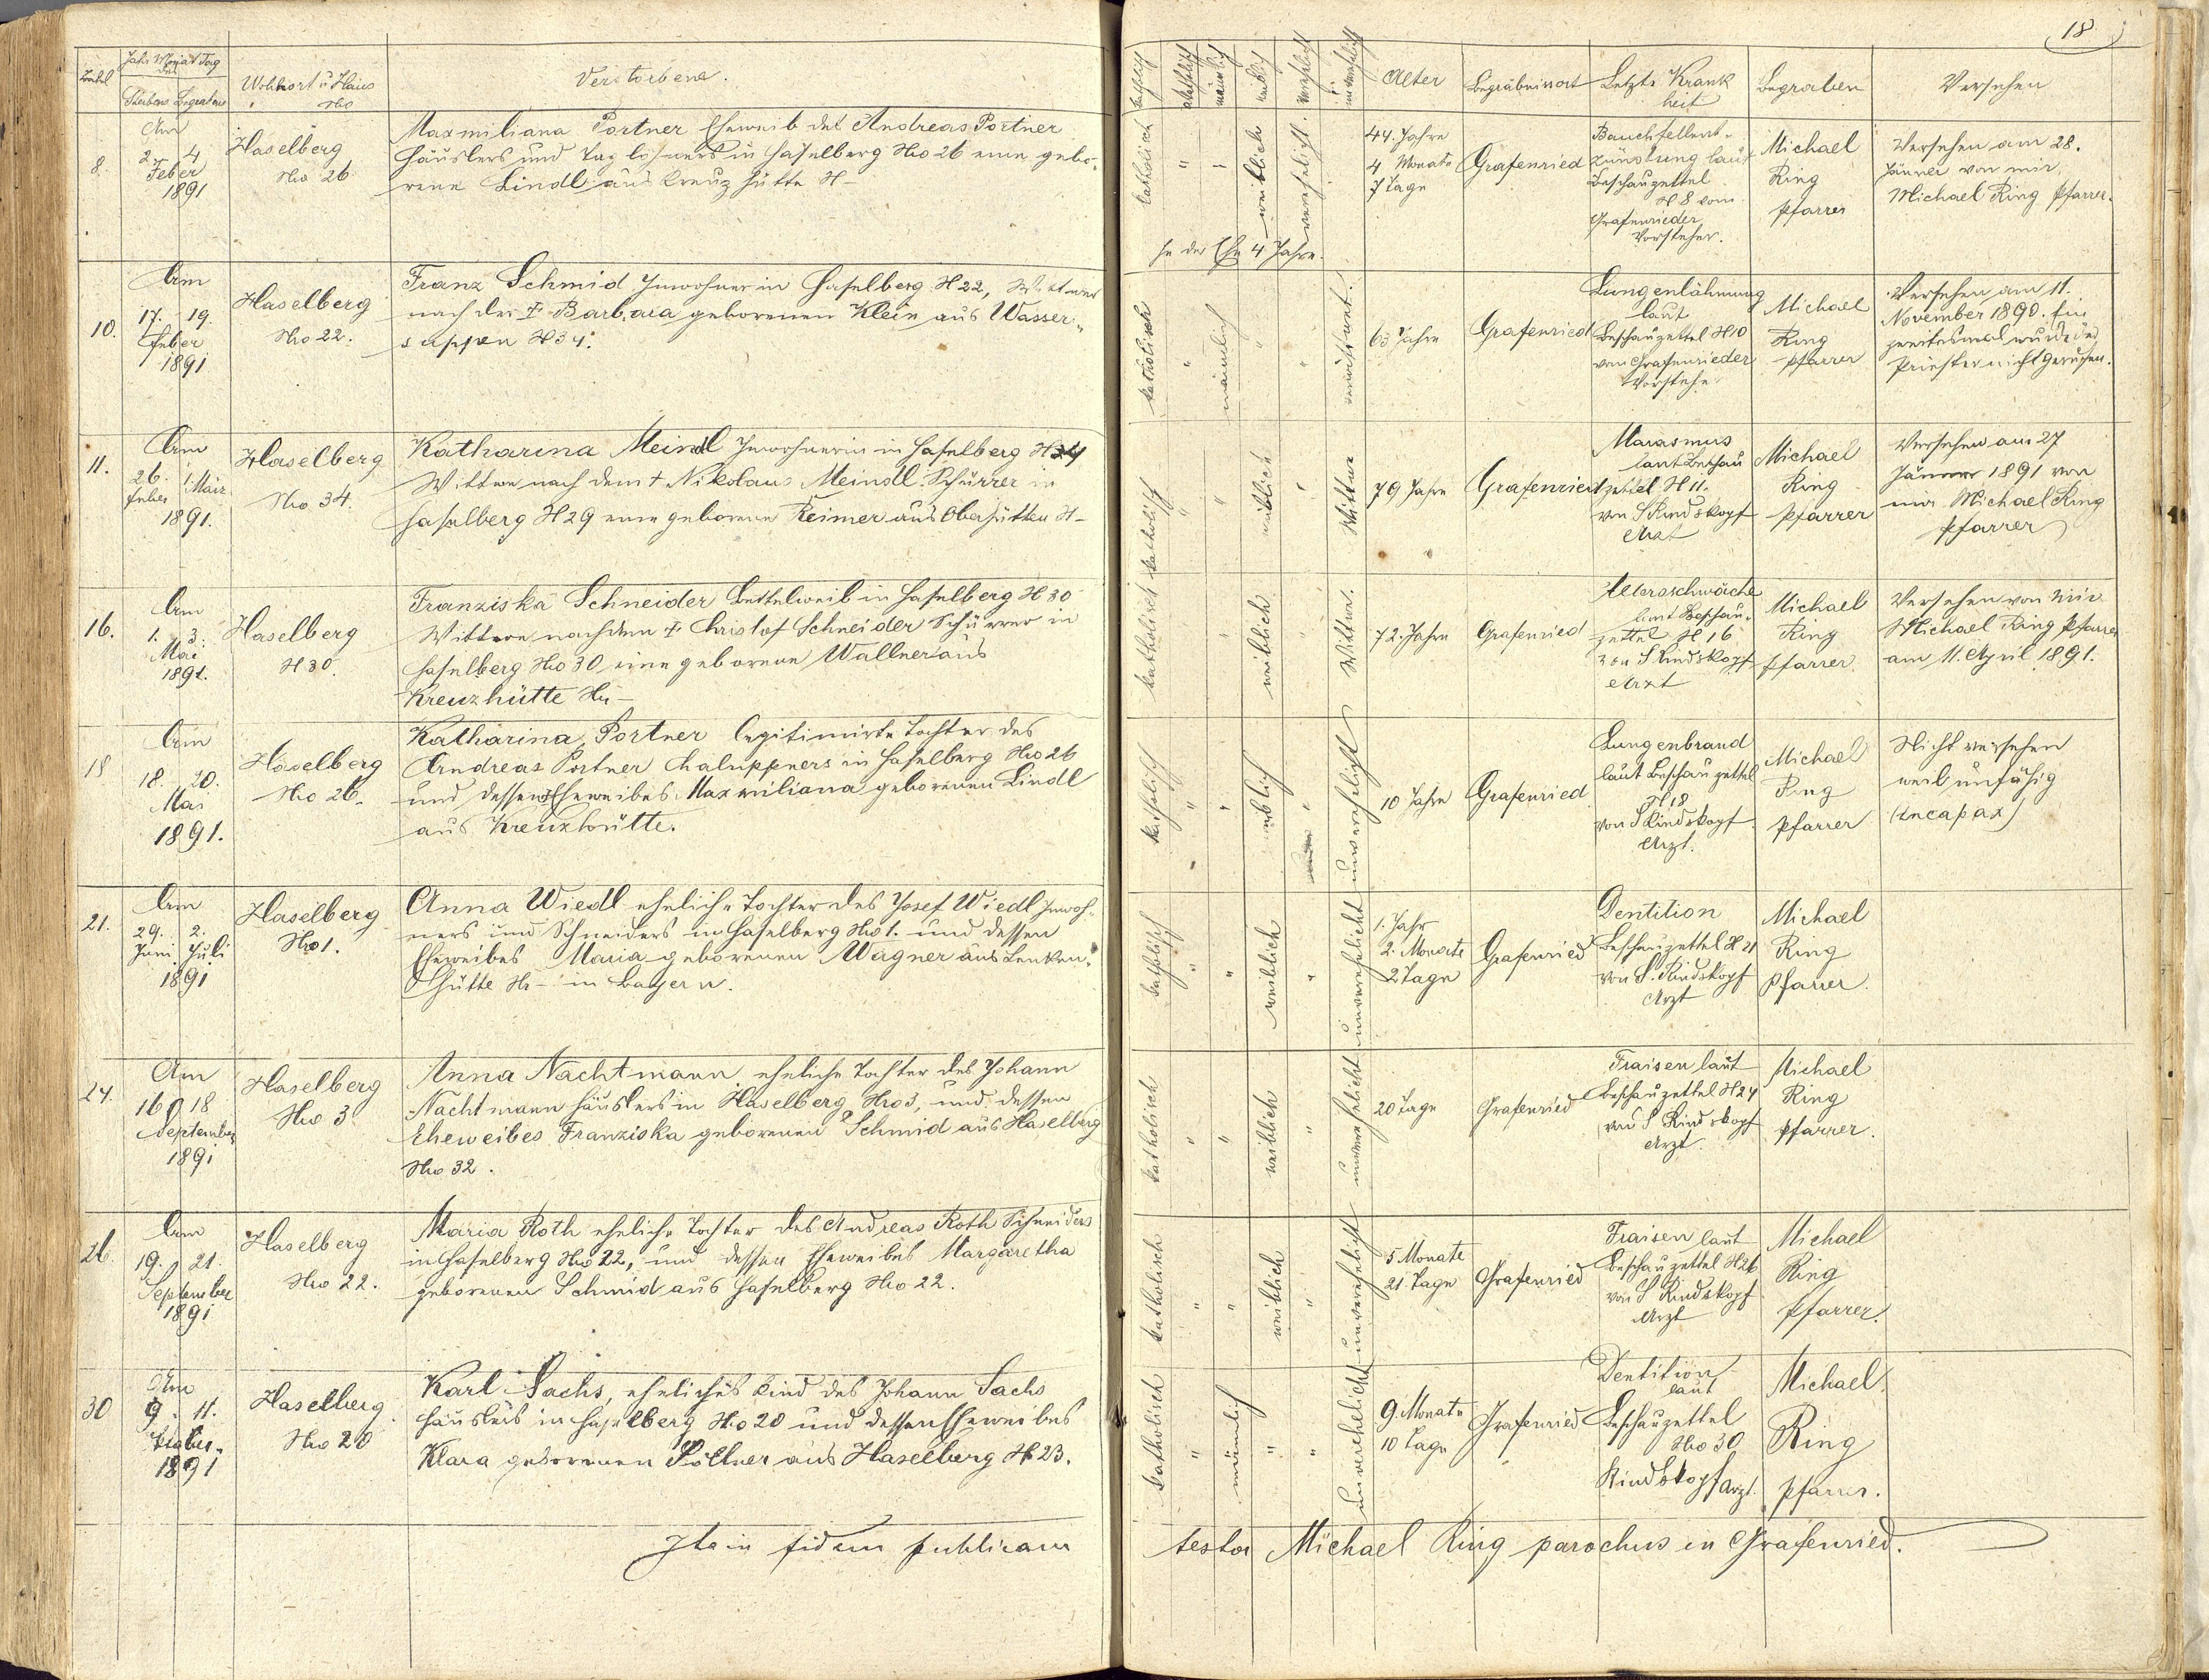 18
Zahl
Jahr Monat Tag
des
Sterbens Begrabens
Wohnort u Haus
Nro
Verstorbene.
katholisch
akatholisch
männlich
weiblich
verehlicht
unverehlicht
Alter
Begräbnisort
Letzte Krank
heit
Begraben
Versehen
8.
Am
2. 4
Feber
1891
Haselberg
Nro 26
Maxmiliana Portner Eheweib des Andreas Portner
Häuslers und Taglöhners in Haselberg Nro 26 eine gebo-
rene Lindl aus Kreuzhütte N-
katholisch
"
"
weiblich
verehelicht.
In der Ehe 4 Jahre.
44. Jahre
4 Monate
7 Tage
Grafenried
Bauchfellent-
zündung laut
Beschauzettel
N 8 vom
Grafenrieder
Vorsteher.
Michael
Ring
Pfarrer
Versehen am 28.
Jänner von mir
Michael Ring Pfarrer.
10.
Am
17. 19.
Feber
1891
Haselberg
Nro 22.
Franz Schmid Inwohner in Haselberg N 22, Witwer
nach der † Barbara geborenen Klein aus Wasser-
suppen N 34.
katholisch
"
männlich
"
"
verwitwet.
63 Jahre
Grafenried
Lungenlähmung
laut
Beschauzettel N 10
von Grafenrieder
Vorsteher
Michael
Ring
Pfarrer
Versehen am 11.
November 1890. Ein
zweitesmal wurde der
Priester nicht gerufen.
11.
Am
26. 1. März
Feber
1891.
Haselberg
Nro 34.
Katharina Meindl Inwohnerin in Haselberg N 34
Wittwe nach dem † Nikolaus Meindl Schürrer in
Haselberg N 29 eine geborene Reimer aus Oberhütten N-
katholisch
"
"
weiblich
"
Wittwe
79 Jahre
Grafenried
Marasmus
laut Beschau
zettel N 11.
von S Rindskopf
Arzt
Michael
Ring
Pfarrer
Versehen am 27
Jänner 1891 von
mir Michael Ring
Pfarrer
16.
Am
1. 3.
Mai
1891.
Haselberg
N 30.
Franziska Schneider Bettelweib in Haselberg N 30
Wittwe nach dem † Christof Schneider Schürrer in
Haselberg Nro 30 eine geborene Wallner aus
Kreuzhütte Nr-
katholisch
"
weiblich
"
Wittwe.
72. Jahre
Grafenried
Altersschwäche
laut Beschau-
zettel N 16
von S Rindskopf
Arzt
Michael
Ring
Pfarrer
Versehen von mir
Michael Ring Pfarrer
am 11. April 1891.
18
Am
18. 20.
Mai
1891.
Haselberg
Nro 26.
Katharina Portner legitimirte Tochter des
Andreas Portner Chaluppners in Haselberg Nro 26
und dessen Eheweibes Maxmiliana geborenen Lindl
aus Kreuzhütte.
katholisch
"
"
weiblich
"
unverehelicht
10 Jahre
Grafenried
Lungenbrand
laut Beschauzettel
N 18
von S Rindskopf
Arzt.
Michael
Ring
Pfarrer
Nicht versehen
weil unfähig
(incapax)
21.
Am
29. 2.
Juni Juli
1891
Haselberg
Nro 1.
Anna Wiedl eheliche Tochter des Josef Wiedl Inwoh-
ners und Schneiders in Haselberg Nro 1. und dessen
Eheweibes Maria geborenen Wagner aus Lenken-
hütte Nr- in Bayern.
katholisch
"
"
weiblich
"
unverehelicht
1. Jahr
2. Monate
2 Tage
Grafenried
Dentition
Beschauzettel N 21
von S. Rindskopf
Arzt
Michael
Ring
Pfarrer.
24.
Am
16 18
September
1891
Haselberg
Nro 3
Anna Nachtmann eheliche Tochter des Johann
Nachtmann Häuslers in Haselberg Nro 3, und dessen
Eheweibes Franziska geborenen Schmid aus Haselberg
Nro 32.
katholisch
"
"
weiblich
"
unverehelicht
20 Tage
Grafenried
Fraisen laut
Beschauzettel N 24
von S Rindskopf
Arzt.
Michael
Ring
Pfarrer.
26.
Am
19. 21.
September
1891
Haselberg
Nro 22.
Maria Roth eheliche Tochter des Andreas Roth Schneiders
in Haselberg Nro 22, und dessen Eheweibes Margaretha
geborenen Schmid aus Haselberg Nro 22.
katholisch
"
"
weiblich
"
unverehelicht
5 Monate
21 Tage
Grafenried
Fraisen laut
Beschauzettel N 26
von S Rindskopf
Arzt
Michael
Ring
Pfarrer.
30
Am
9. 11.
1891
Haselberg.
Nro 20
Karl Sachs, eheliches Kind des Johann Sachs
Häuslers in Haselberg Nro 20 und dessen Eheweibes
Klara geborenen Zöllner aus Haselberg N 23.
katholisch
"
männlich
"
"
unverehelicht
9. Monate
10 Tage
Grafenried
Dentition
laut
Beschauzettel
Nro 30
Rindskopf Arzt.
Michael
Ring
Pfarrer.
Ita in fidem publicam
testor Michael Ring parochus in Grafenried.